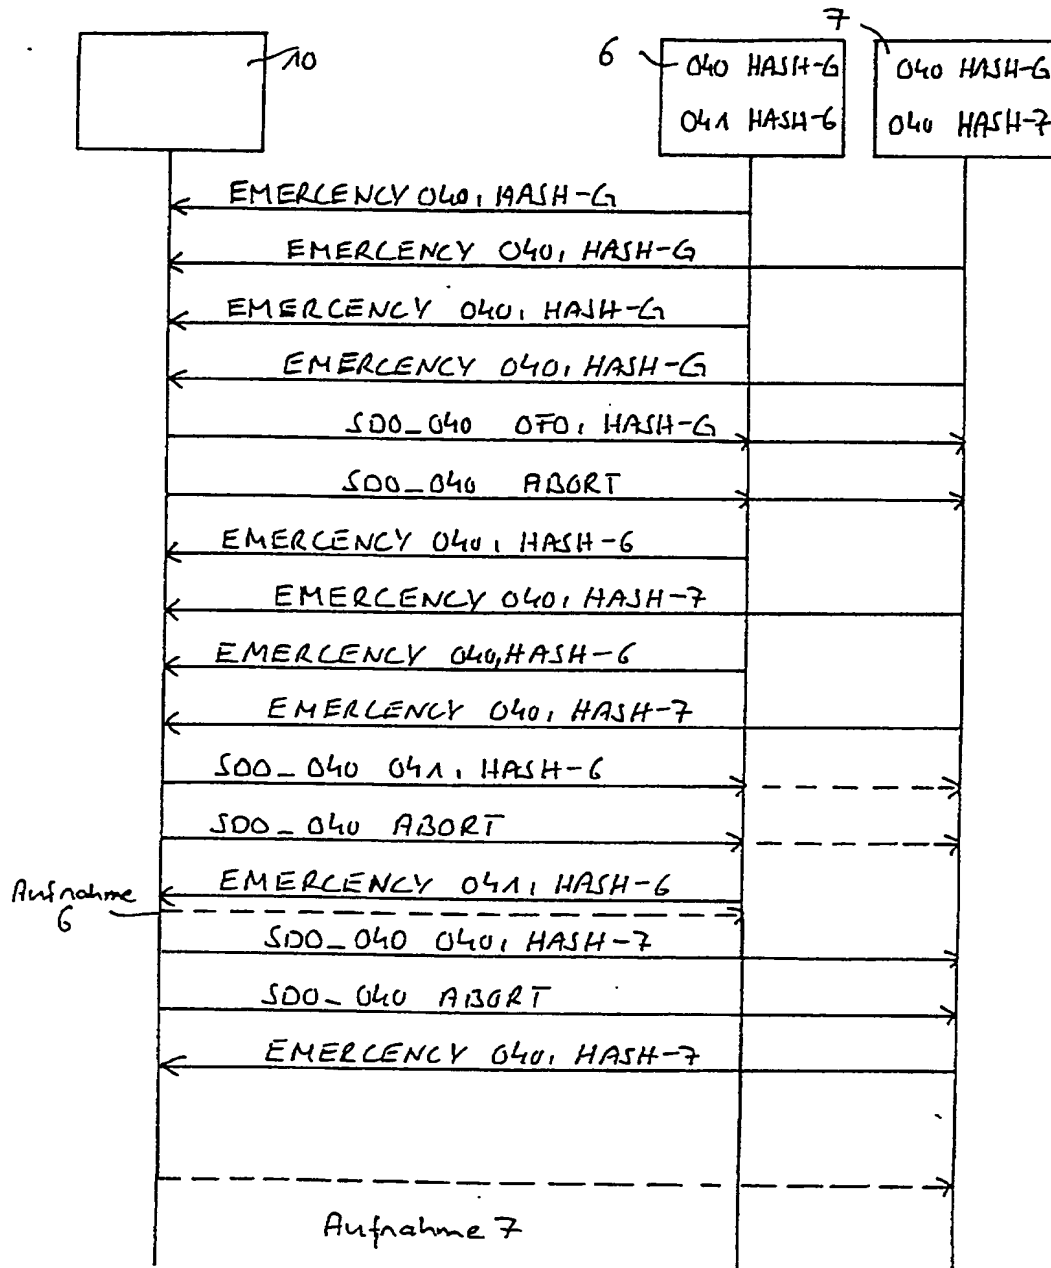 10
6
7
040 HASH-G
041 HASH-6
040 HASH-G
040 HASH-7
EMERGENCY 040, HASH-G
EMERGENCY 040, HASH-G
EMERGENCY 040, HASH-G
EMERGENCY 040, HASH-G
SDO_040 0F0, HASH-G
SDO_040 ABORT
EMERGENCY 040, HASH-6
EMERGENCY 040, HASH-7
EMERGENCY 040, HASH-6
EMERGENCY 040, HASH-7
SDO_040 041, HASH-6
SDO_040 ABORT
EMERGENCY 041, HASH-6
Aufnahme
6
SDO_040 040, HASH-7
SDO_040 ABORT
EMERGENCY 040, HASH-7
Aufnahme 7